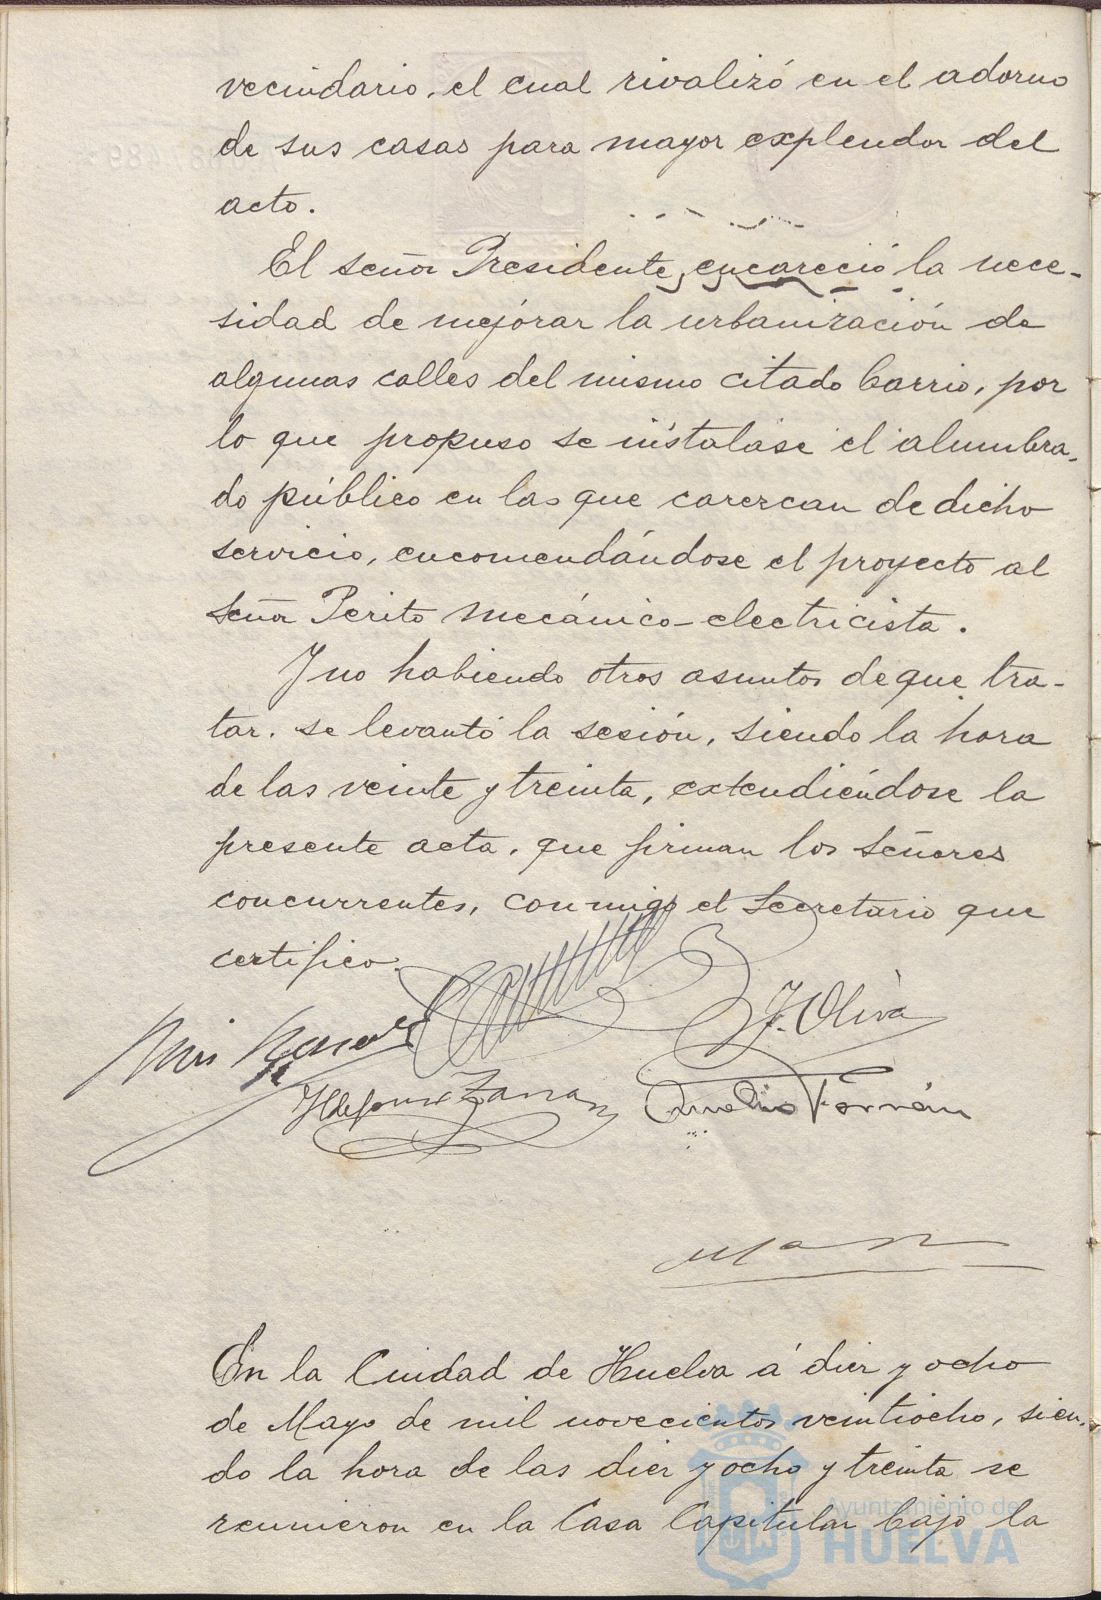 vecindario, el cual rivalizó en el adorno
de sus casas para mayor explendor del
acto.
El señor Presidente encareció la nece-
sidad de mejorar la urbanización de
algunas calles del mismo citado barrio, por
lo que propuso se instalase el alumbra-
do público en las que carezcan de dicho
servicio, encomendándose el proyecto al
señor Perito mecánico-electricista.
Y no habiendo otros asuntos de que tra-
tar, se levantó la sesión, siendo la hora
de las veinte y treinta, extendiéndose la
presente acta, que firman los señores
concurrentes, conmigo el Secretario que
certifico.
J. Oliva
En la Ciudad de Huelva á diez y ocho
de Mayo de mil novecientos veintiocho, sien-
do la hora de las diez y ocho y treinta se
reunieron en la Casa Capitular bajo la
Ayuntamiento de
HUELVA